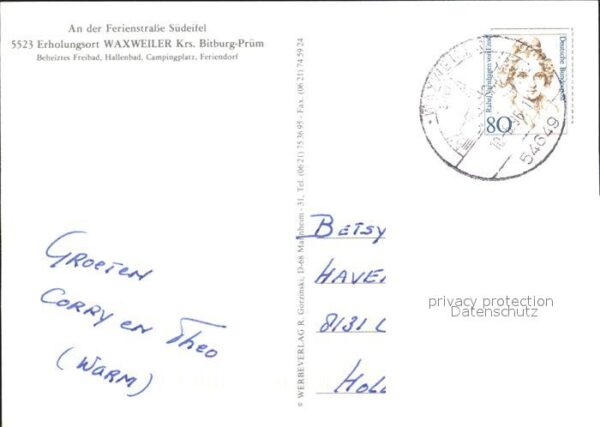 An der Ferienstraße Südeifel
5523 Erholungsort WAXWEILER Krs. Bitburg-Prüm
Beheiztes Freibad, Hallenbad, Campingplatz, Feriendorf
© WERBEVERLAG R. Gorzinski, D-68 Mannheim - 31, Tel. (06 21) 75 36 95 · Fax (06 21) 74 59 24
Deutsche Bundespost
80
WAXWEILER
54649
GROETEN
CORRY EN Theo
(WARM)
BETSY
HAVE
8131 L
HOLL
privacy protection
Datenschutz